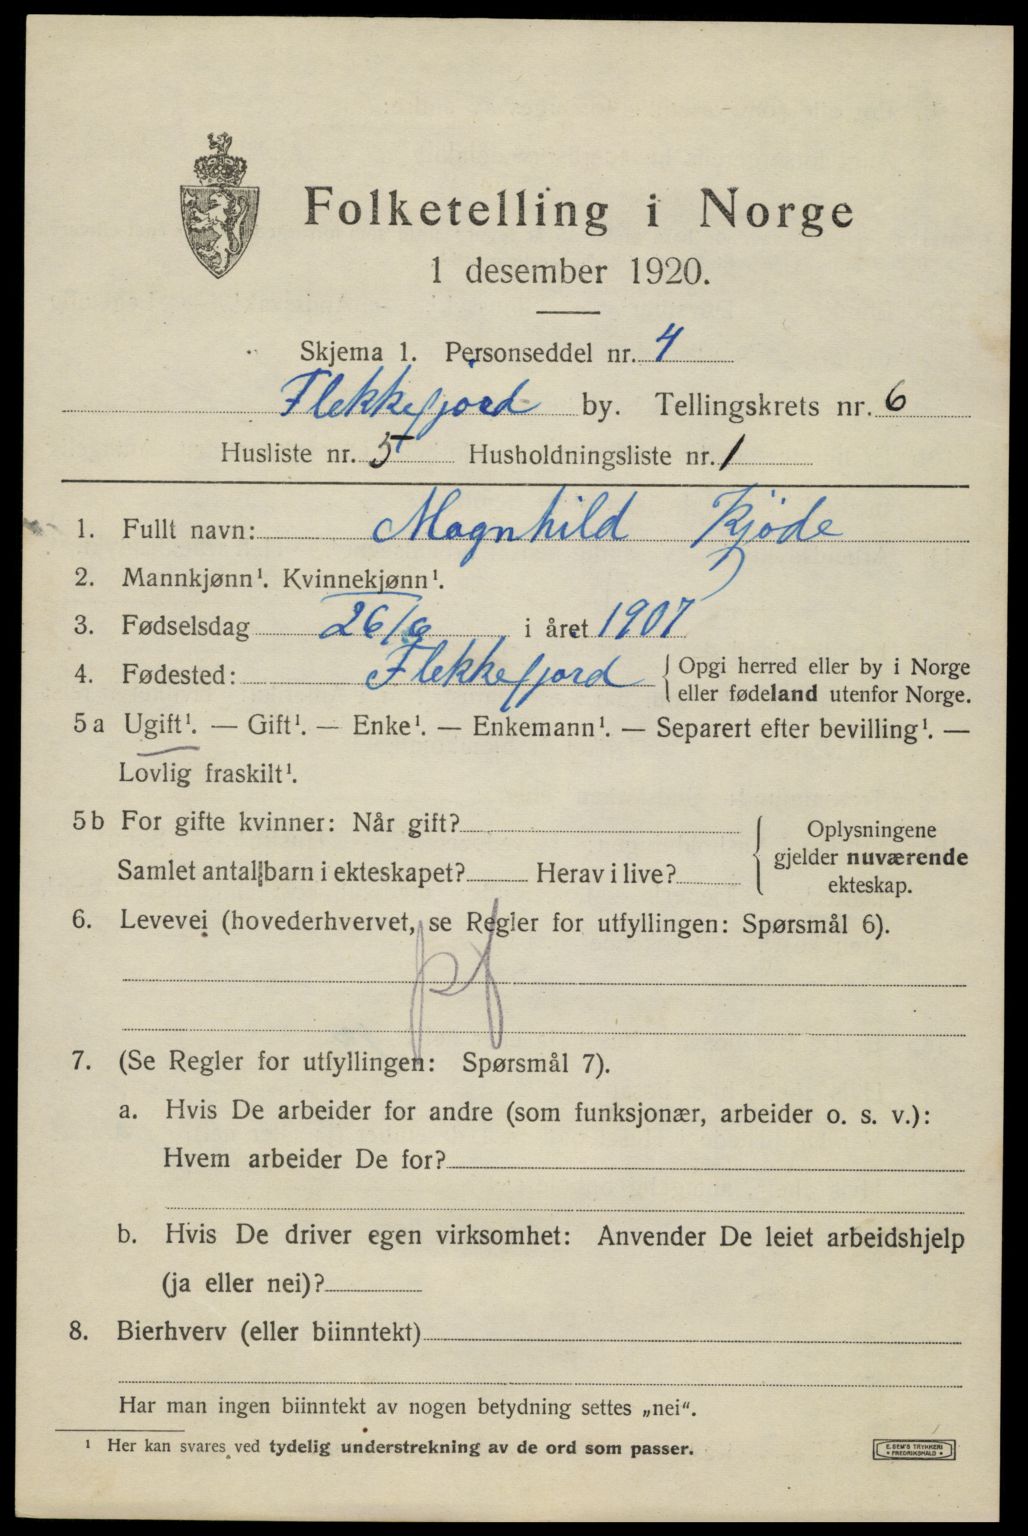 Folketelling i Norge
1 desember 1920.
Skjema 1. Personseddel nr. 4
Flekkefjord by. Tellingskrets nr. 6
Husliste nr. 5 Husholdningsliste nr. 1
1. Fullt navn: Magnhild Kjöde
2. Mannkjønn¹. Kvinnekjønn¹.
3. Fødselsdag 26/6 i året 1907
4. Fødested: Flekkefjord { Opgi herred eller by i Norge
eller fødeland utenfor Norge.
5a Ugift¹. — Gift¹. — Enke¹. — Enkemann¹. — Separert efter bevilling¹. —
Lovlig fraskilt¹.
5b For gifte kvinner: Når gift?
Samlet antal barn i ekteskapet? Herav i live?
{ Oplysningene
gjelder nuværende
ekteskap.
6. Levevei (hovederhvervet, se Regler for utfyllingen: Spørsmål 6).
pf
7. (Se Regler for utfyllingen: Spørsmål 7).
a. Hvis De arbeider for andre (som funksjonær, arbeider o. s. v.):
Hvem arbeider De for?
b. Hvis De driver egen virksomhet: Anvender De leiet arbeidshjelp
(ja eller nei)?
8. Bierhverv (eller biinntekt)
Har man ingen biinntekt av nogen betydning settes „nei".
¹ Her kan svares ved tydelig understrekning av de ord som passer.
E. SEM'S TRYKKERI
• FREDRIKSHALD •